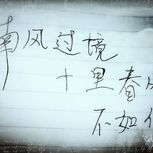 南风过境
十里春
不如